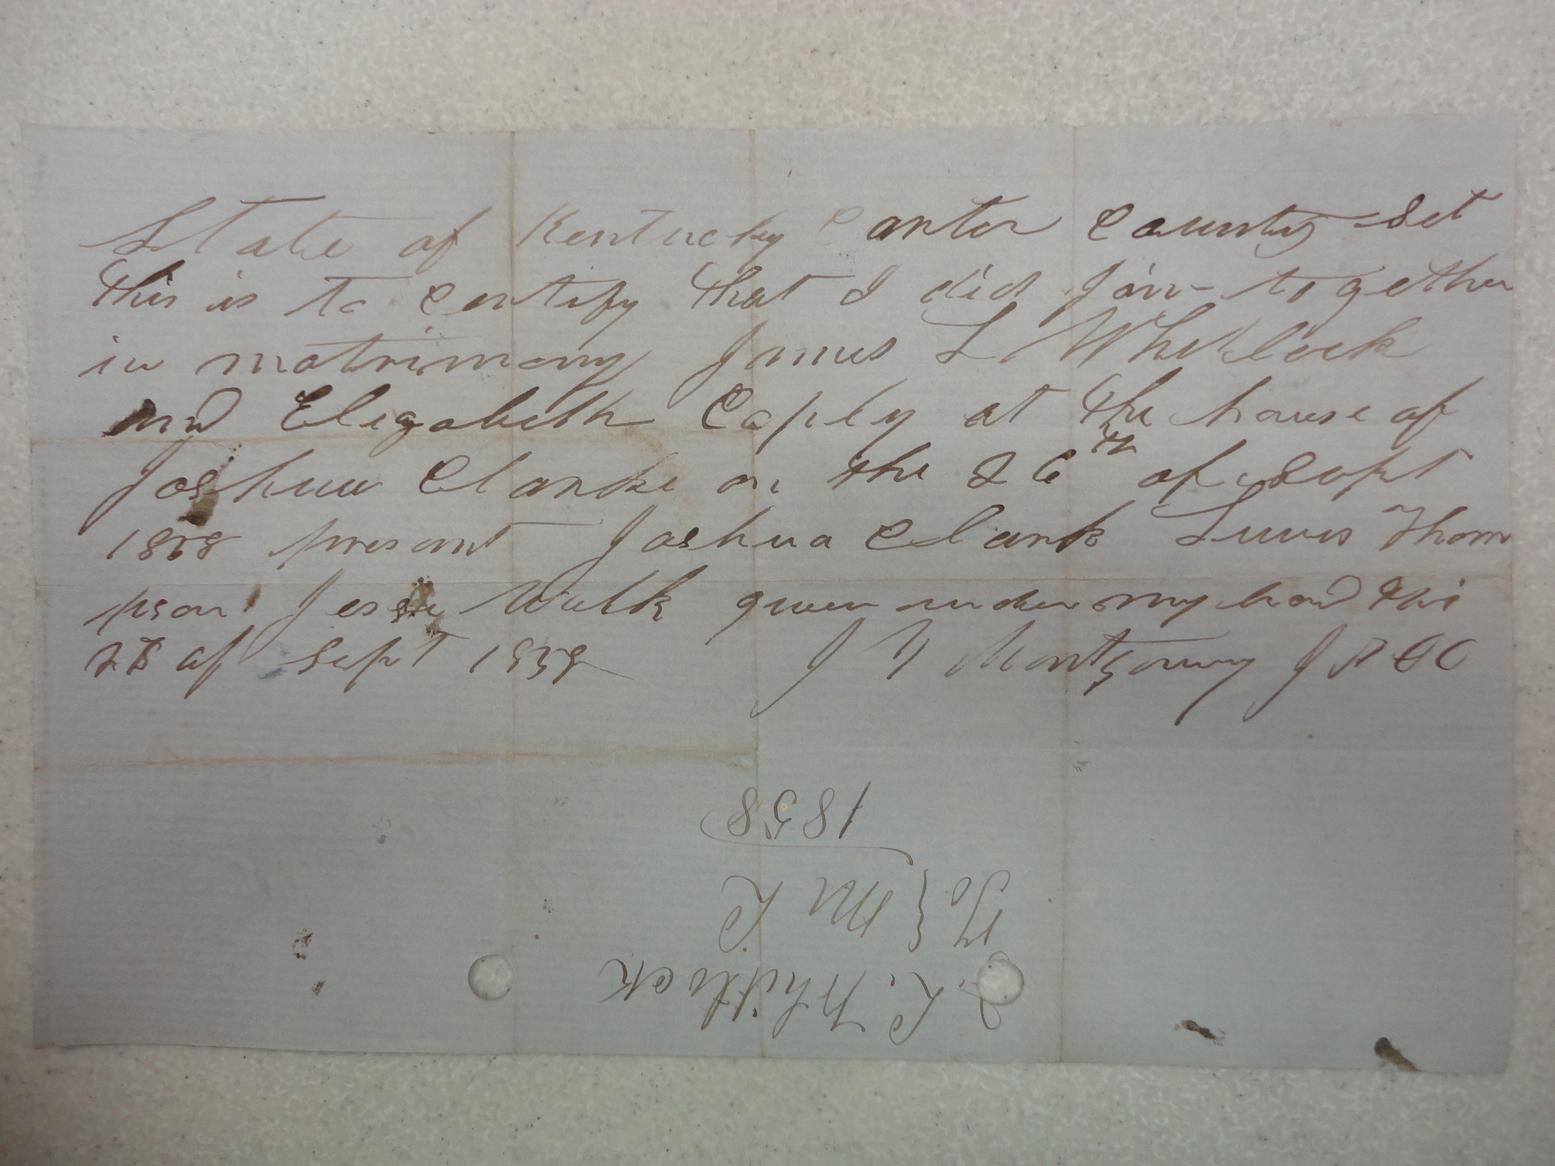 State of Kentucky Carter County Sct
This is to Certify that I did Join together
in matrimony James L Whitlock
and Elizabeth Caply at the house of
Joshua Clarke on the 26th of Sept
1858 present Joshua Clark Lewis Thom
pson Jesse Walk given under my hand this
28 of Sept 1858 J N Montgomery J P C C
J. L. Whitlock
To } M L
1858